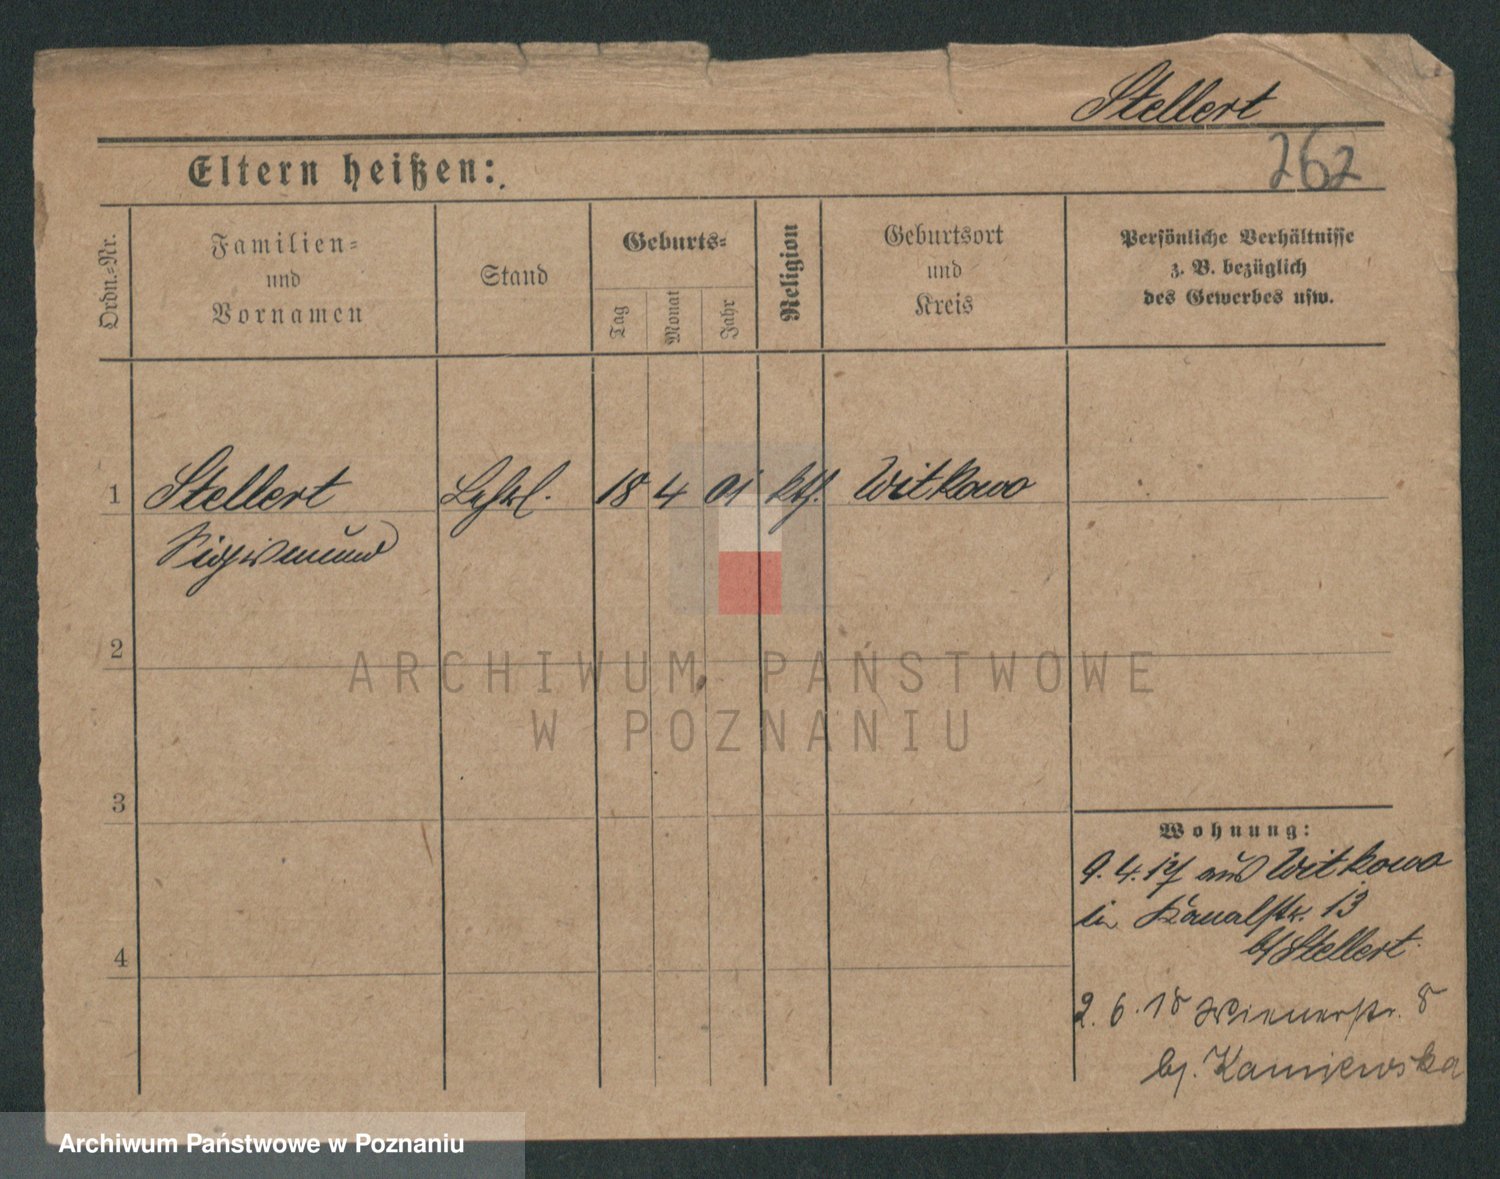 Stellert
262
Eltern heißen:
Ordn.-Nr.
Familien-
und
Vornamen
Stand
Geburts-
Tag
Monat
Jahr
Religion
Geburtsort
und
Kreis
Persönliche Verhältnisse
z. B. bezüglich
des Gewerbes usw.
1 Stellert 18 4 01 kth. Witkowo
Sigismund
2
3
4
Wohnung:
9.4.17 aus Witkowo
in Kanalstr. 13
b/ Stellert
2.6.18 Wienerstr. 8
bj. Kaniewska
ARCHIWUM PAŃSTWOWE
W POZNANIU
Archiwum Państwowe w Poznaniu